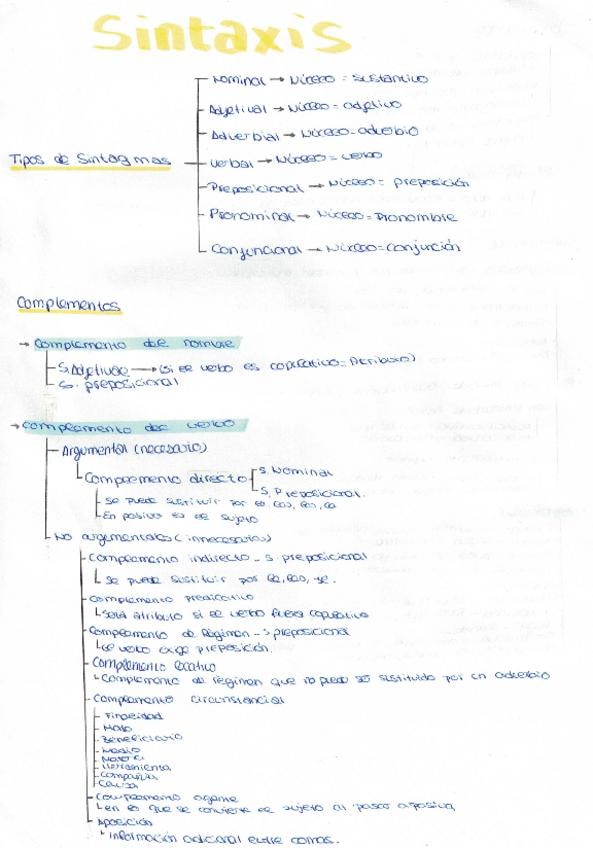 Sintaxis
Nominal → Núcleo = sustantivo
Adjetival → Núcleo = adjetivo
Adverbial → Núcleo = adverbio
Tipos de Sintagmas
Verbal → Núcleo = verbo
Preposicional → Núcleo = preposición
Pronominal → Núcleo = Pronombre
Conjuncional → Núcleo = conjunción
Complementos
→ Complemento del nombre
S. Adjetival → (si el verbo es copulativo = Atributo)
S. preposicional
→ Complemento del verbo
Argumental (necesario)
Complemento directo
S. Nominal
S. Preposicional.
Se puede sustituir por lo, los, la
En pasiva es el sujeto
No argumentales (innecesarios)
Complemento indirecto - S. preposicional
Se puede sustituir por le, les, se.
Complemento predicativo
Será atributo si el verbo fuera copulativo
Complemento de Régimen - S preposicional
el verbo exige preposición.
Complemento locativo
Complemento de régimen que no puede ser sustituido por un adverbio
Complemento circunstancial
Finalidad
Modo
Beneficiario
Medio
Materia
Herramienta
Compañía
Causa
Complemento agente
en lo que se convierte el sujeto al pasar a pasiva
Aposición
Información adicional entre comas.